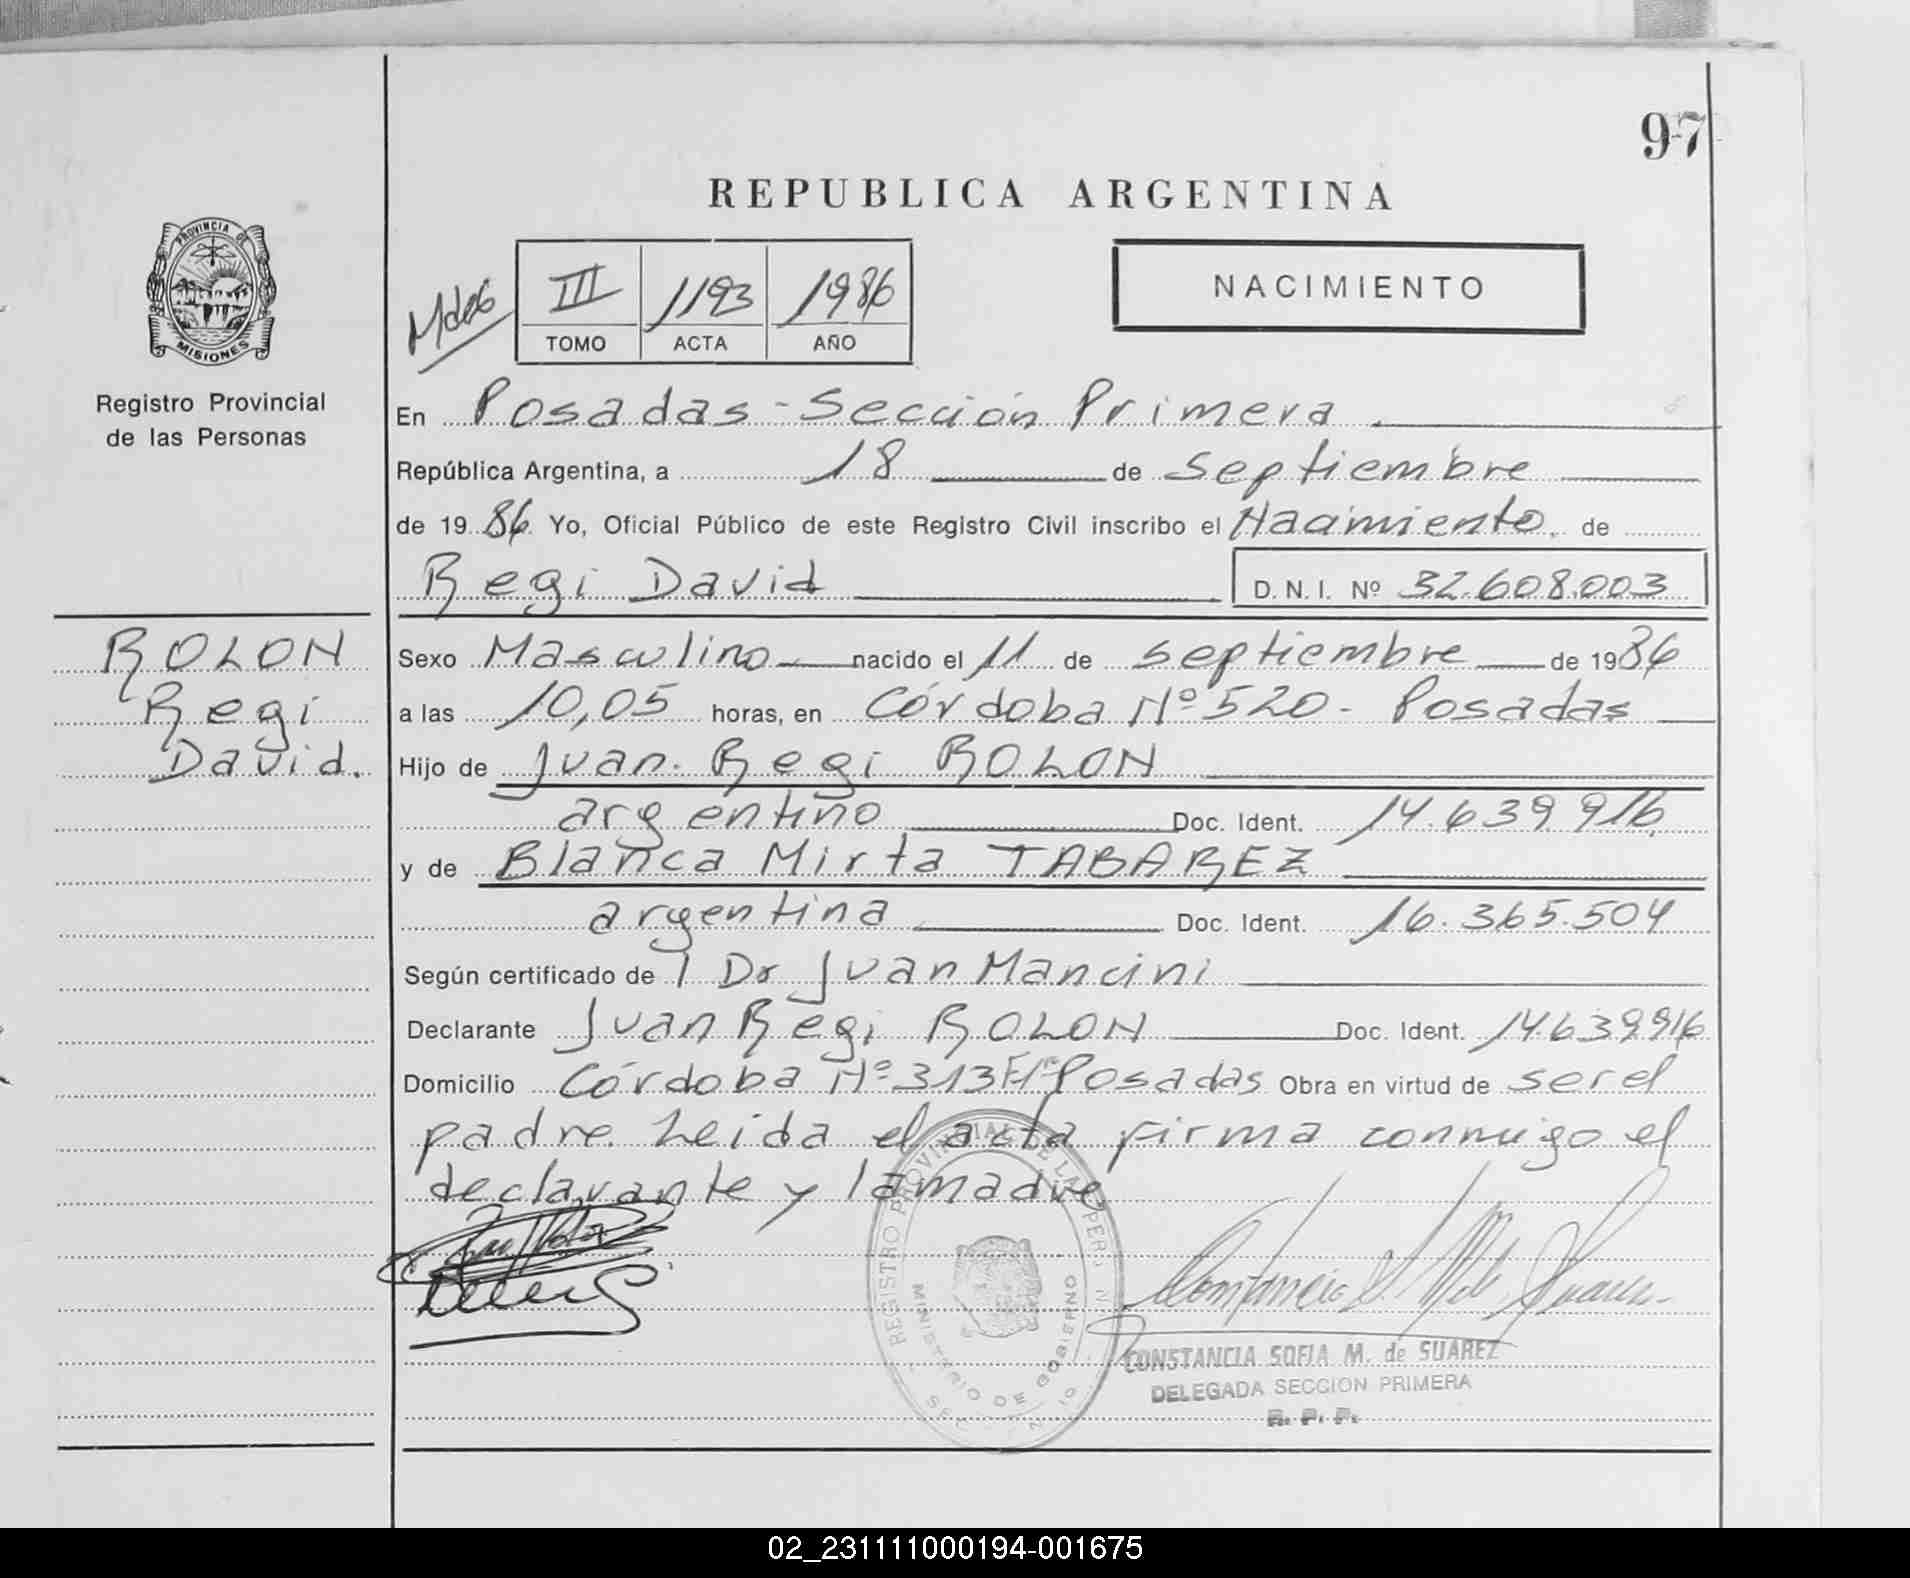 97
REPUBLICA ARGENTINA
PROVINCIA DE
MISIONES
Registro Provincial
de las Personas
III 1193 1986
TOMO ACTA AÑO
NACIMIENTO
En Posadas - Sección Primera
República Argentina, a 18 de septiembre
de 1986 Yo, Oficial Público de este Registro Civil inscribo el Nacimiento de
Regi David D. N. I. Nº 32.608.003
ROLON
Regi
David.
Sexo Masculino nacido el 11 de septiembre de 1986
a las 10,05 horas, en Córdoba Nº 520 - Posadas
Hijo de Juan Regi ROLON
argentino Doc. Ident. 14.639.916
y de Blanca Mirta TABAREZ
argentina Doc. Ident. 16.365.504
Según certificado de Dr Juan Mancini
Declarante Juan Regi ROLON Doc. Ident. 14.639.916
Domicilio Córdoba Nº 313 Posadas Obra en virtud de ser el
padre. Leida el acta firma conmigo el
declarante y la madre
REGISTRO PROVINCIAL DE LAS PERSONAS
MINISTERIO DE GOBIERNO
CONSTANCIA SOFIA M. de SUAREZ
DELEGADA SECCION PRIMERA
R. P. P.
02_231111000194-001675